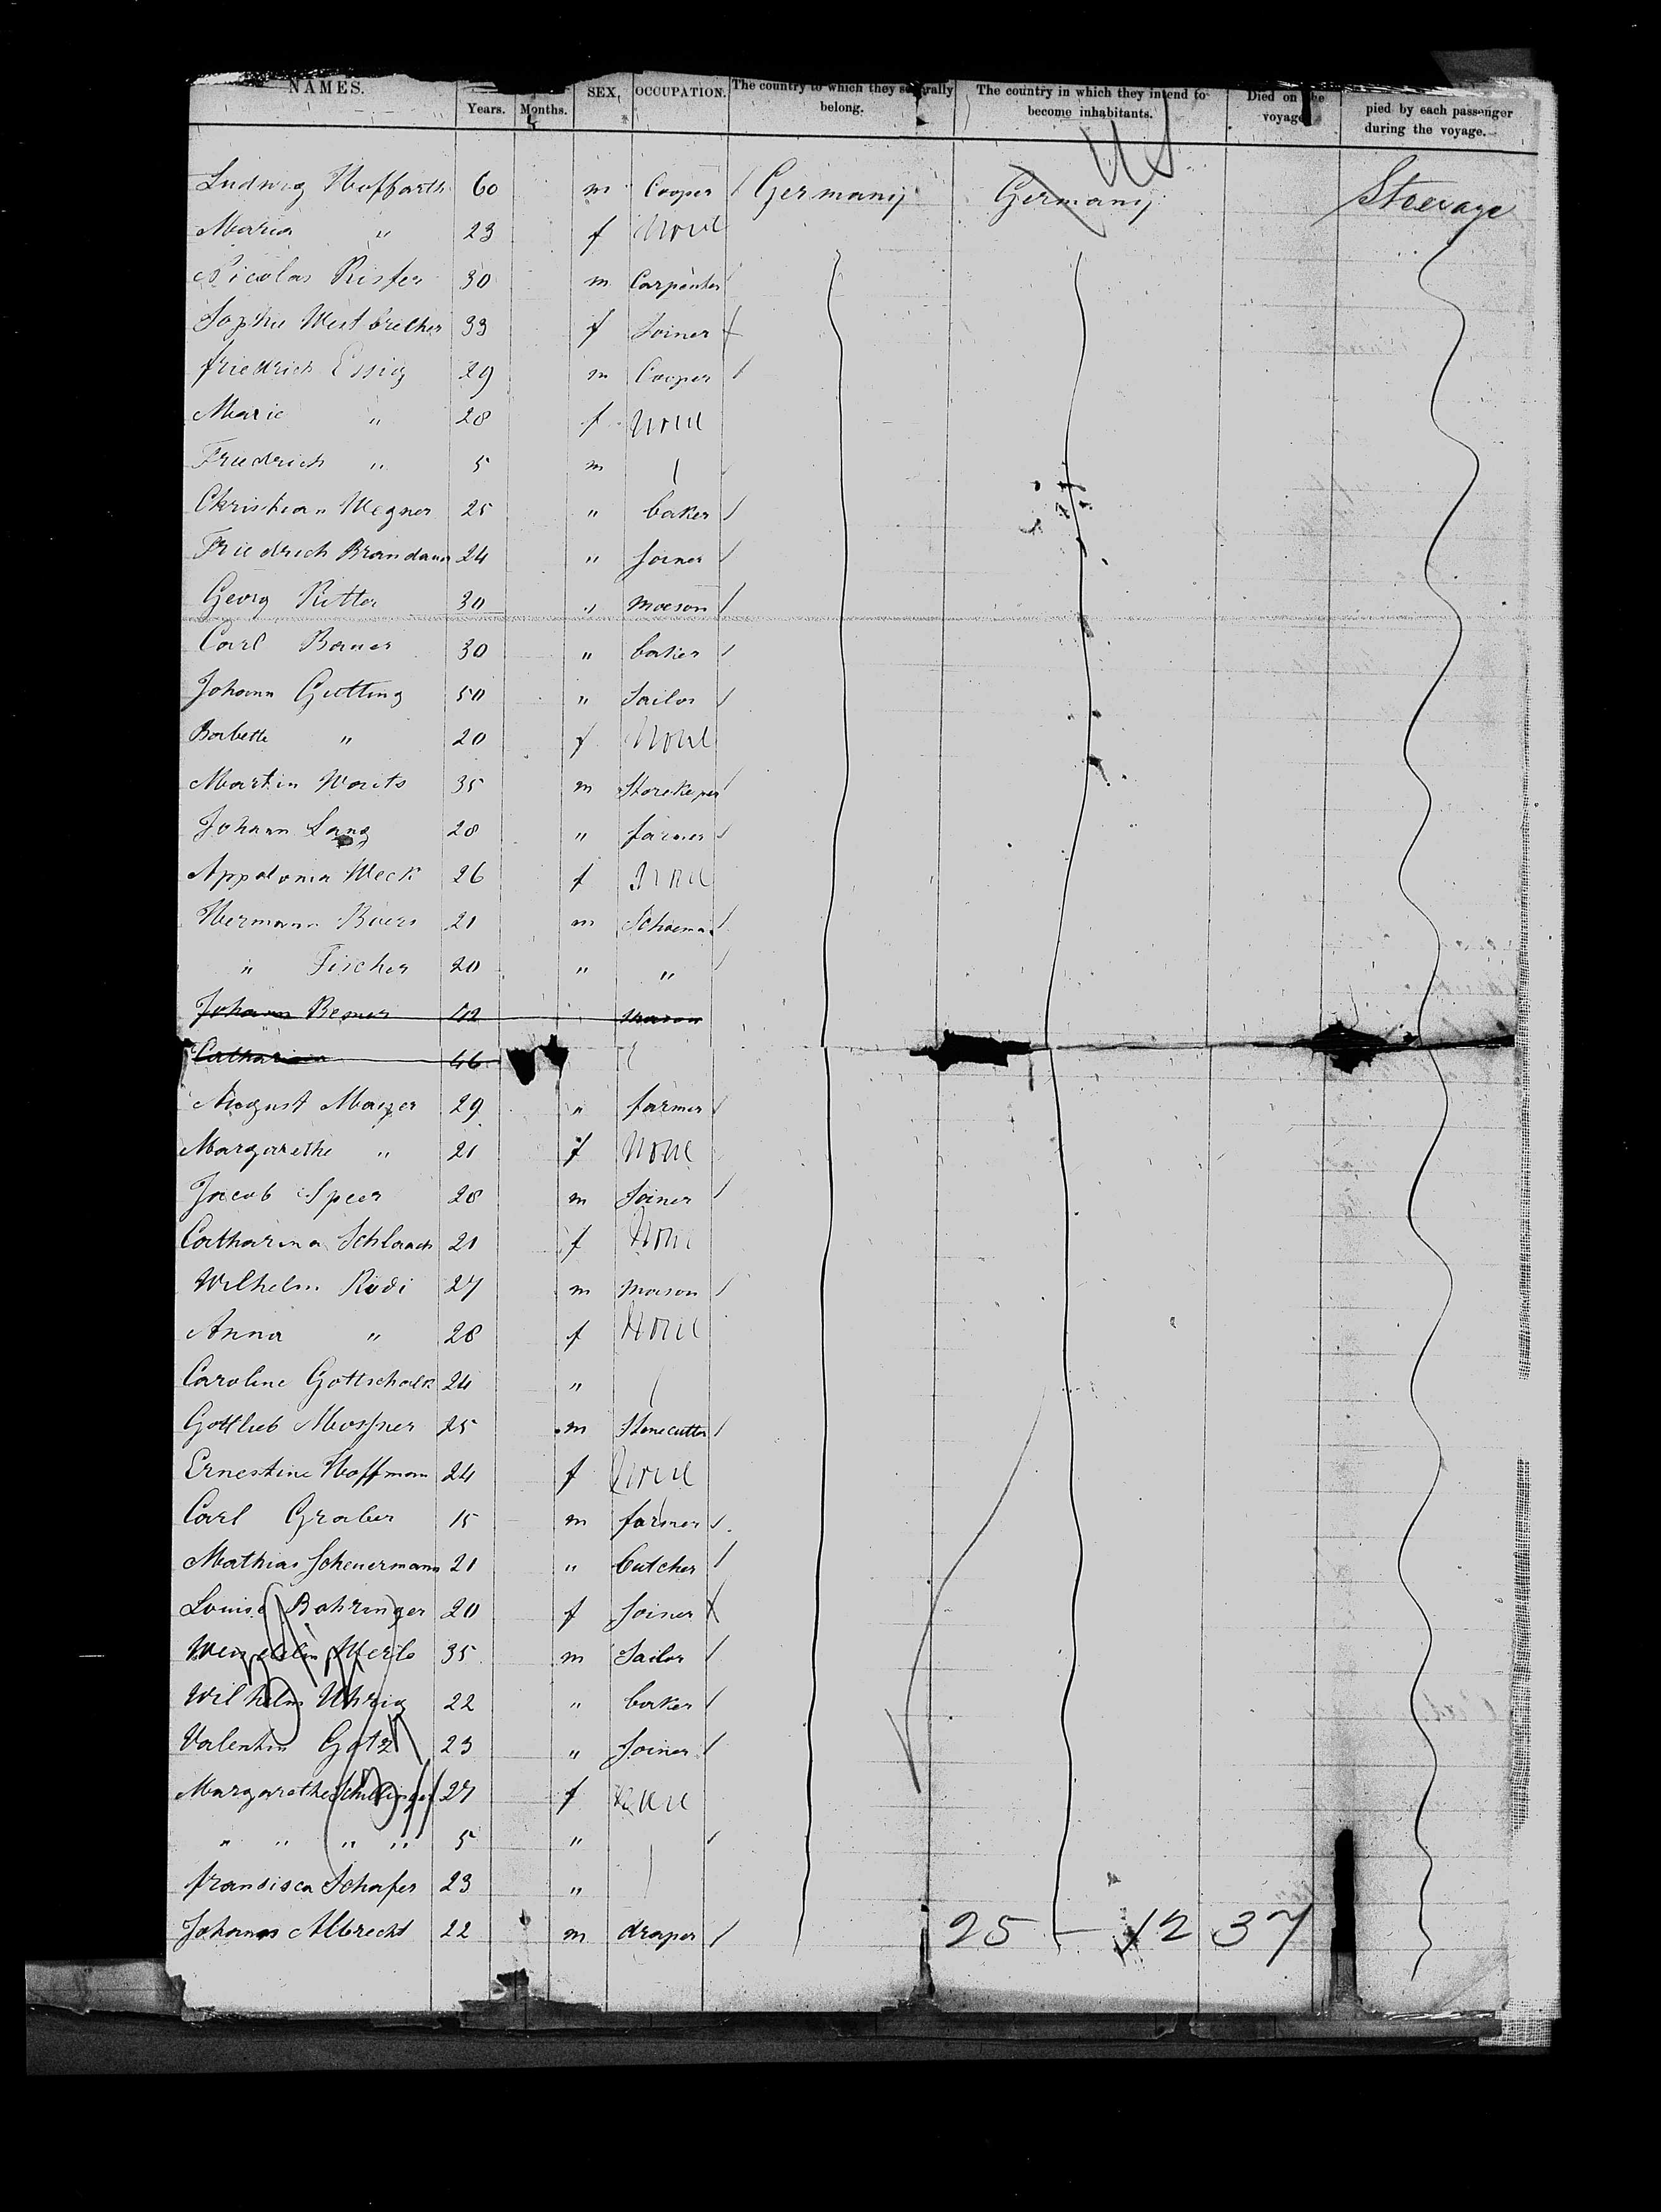 NAMES. Years. Months. SEX, OCCUPATION. The country to which they severally belong. The country in which they intend to become inhabitants. Died on the voyage pied by each passenger during the voyage.
US
Ludwig Hoffarth 60 m Cooper Germany Germany Steerage
Maria " 23 f None
Nicolas Risfer 30 m Carpenter
Sophie 33 f Joiner
friedrich Essig 29 m Cooper
Marie " 28 f None
Friedrich " 5 m
Christian Wegner 25 " baker
Friedrich 24 " Joiner
Georg Ritter 30 " mason
Carl Bauer 30 " baker
Johann Gutting 50 " Tailor
Babette " 20 f None
Martin 35 m Storekeper
Johann Lang 28 " farmer
Appolonia Weck 26 f None
Hermann 21 m Schoema
" Fischer 20 " "
Johann 42 mason
Catharina 46
August Mayer 29 " farmer
Margarethe " 21 f None
Jacob Speer 28 m Joiner
Catharina 21 f None
Wilhelm Rodi 27 m mason
Anna " 28 f None
Caroline Gottschalk 24 "
Gottlieb 25 m Stonecutter
Ernestine Hoffmann 24 f None
Carl Graber 15 m farmer
Mathias Scheuermann 21 " butcher
Louise Bohringer 20 f Joiner
Wendelin 35 m Tailor
Wilhelm Uhrig 22 " baker
Valentin Gotz 23 " Joiner
Margarethe 27 f None
" " " " 5 "
fransisca Schafer 23 "
Johannes Albrecht 22 m draper
25 - 12 37